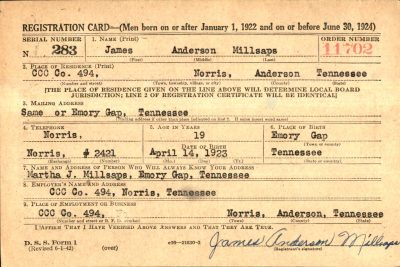 REGISTRATION CARD—(Men born on or after January 1, 1922 and on or before June 30, 1924)
SERIAL NUMBER 1. NAME (Print) ORDER NUMBER
N 283 James Anderson Millsaps 11702
(First) (Middle) (Last)
2. PLACE OF RESIDENCE (Print)
CCC Co. 494, Norris, Anderson Tennessee
(Number and street) (Town, township, village, or city) (County) (State)
[THE PLACE OF RESIDENCE GIVEN ON THE LINE ABOVE WILL DETERMINE LOCAL BOARD
JURISDICTION; LINE 2 OF REGISTRATION CERTIFICATE WILL BE IDENTICAL]
3. MAILING ADDRESS
Same or Emory Gap, Tennessee
[Mailing address if other than place indicated on line 2. If same insert word same]
4. TELEPHONE 5. AGE IN YEARS 6. PLACE OF BIRTH
Norris, 19 Emory Gap
DATE OF BIRTH (Town or county)
Norris, # 2421 April 14, 1923 Tennessee
(Exchange) (Number) (Mo.) (Day) (Yr.) (State or country)
7. NAME AND ADDRESS OF PERSON WHO WILL ALWAYS KNOW YOUR ADDRESS
Martha J. Millsaps, Emory Gap, Tennessee
8. EMPLOYER'S NAME AND ADDRESS
CCC Co. 494, Norris, Tennessee
9. PLACE OF EMPLOYMENT OR BUSINESS
CCC Co. 494, Norris, Anderson, Tennessee
(Number and street or R. F. D. number) (Town) (County) (State)
I AFFIRM THAT I HAVE VERIFIED ABOVE ANSWERS AND THAT THEY ARE TRUE.
D. S. S. Form 1
(Revised 6-1-42) (over) 16—21630-2 James Anderson Millsaps